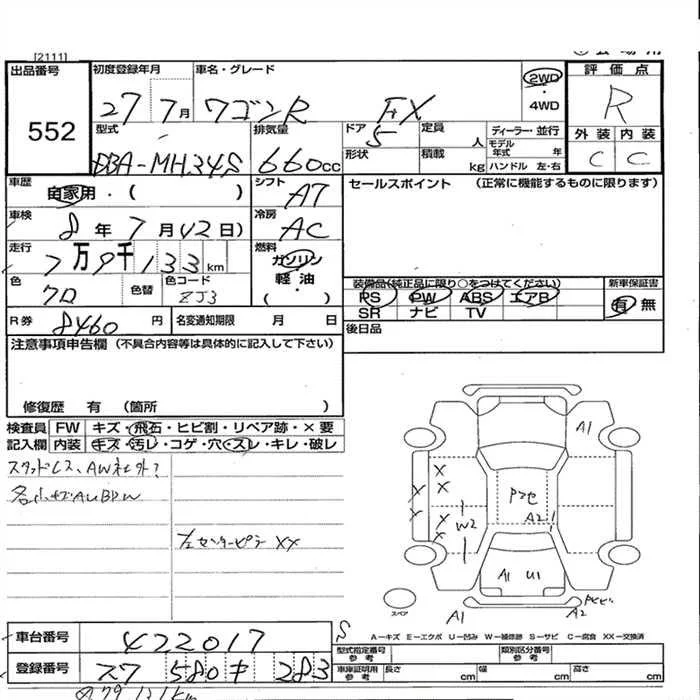 [2111]
出品番号
552
初度登録年月
27 7月
車名・グレード
ワゴンR FX
2WD
・
4WD
評価点
R
外装 内装
C C
型式
DBA-MH34S
排気量
660cc
ドア
5
定員
人
ディーラー・並行
モデル年式 年
形状
積載
kg
ハンドル 左・右
車歴
自家用・( )
シフト
AT
セールスポイント (正常に機能するものに限ります)
車検
8年7月(2日)
冷房
AC
走行
7万9千133km
燃料
ガソリン
・
軽油
( )
色
クロ
色替
色コード
ZJ3
装備品(純正品に限り○をつけてください)
PS PW ABS エアB
SR ナビ TV
新車保証書
有 無
R券
8460円
名変通知期限 月 日
後日品
注意事項申告欄 (不具合内容等は具体的に記入して下さい)
修復歴 有 (箇所 )
検査員 FW キズ・飛石・ヒビ割・リペア跡・×要
記入欄 内装 キズ・汚レ・コゲ・穴・スレ・キレ・破レ
スタッドレス、AW社外?
左センターピラー XX
A1
W2
A2
A1 U1
A1
A2
スペア
S
A-キズ E-エクボ U-凹み W-補修跡 S-サビ C-腐食 XX-交換済
車台番号
422017
登録番号
580 キ 283
型式指定番号
参考
類別区分番号
参考
車庫証明用
参考
長さ cm
幅 cm
高さ cm